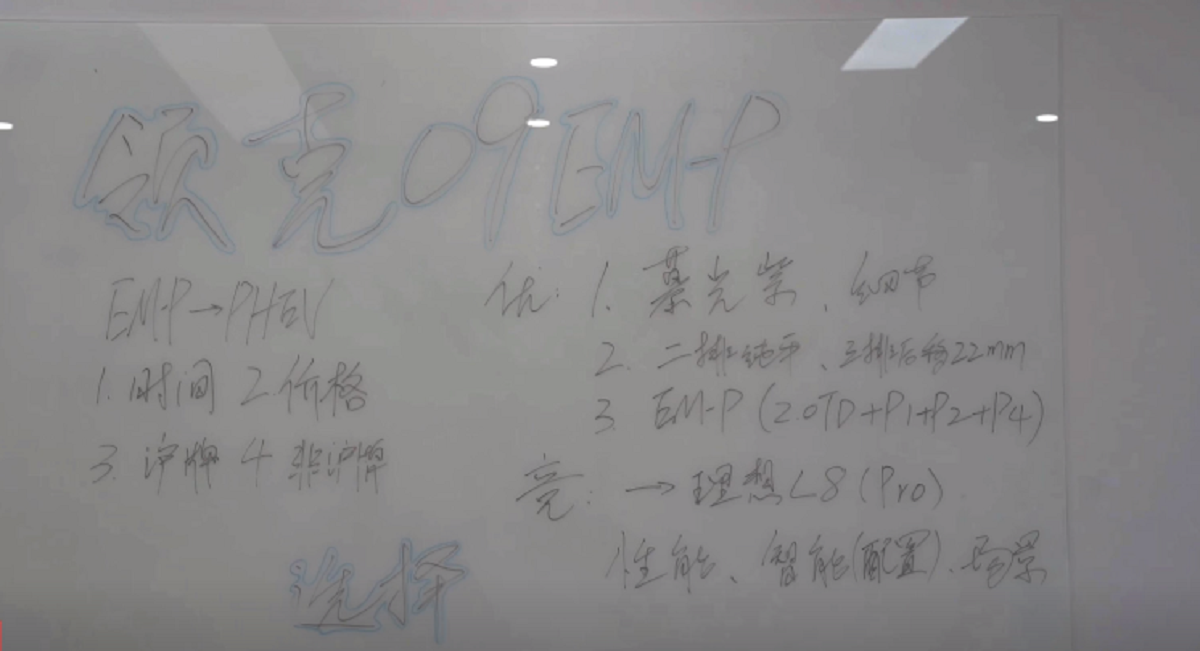 领克09EM-P
EM-P→PHEV
1. 时间 2 价格
3. 沪牌 4 非沪牌
选择
优: 1. 慕光紫、细节
2. 二排纯平、三排后移22mm
3. EM-P (2.0TD+P1+P2+P4)
竞: → 理想L8 (Pro)
性能、智能(配置)、场景